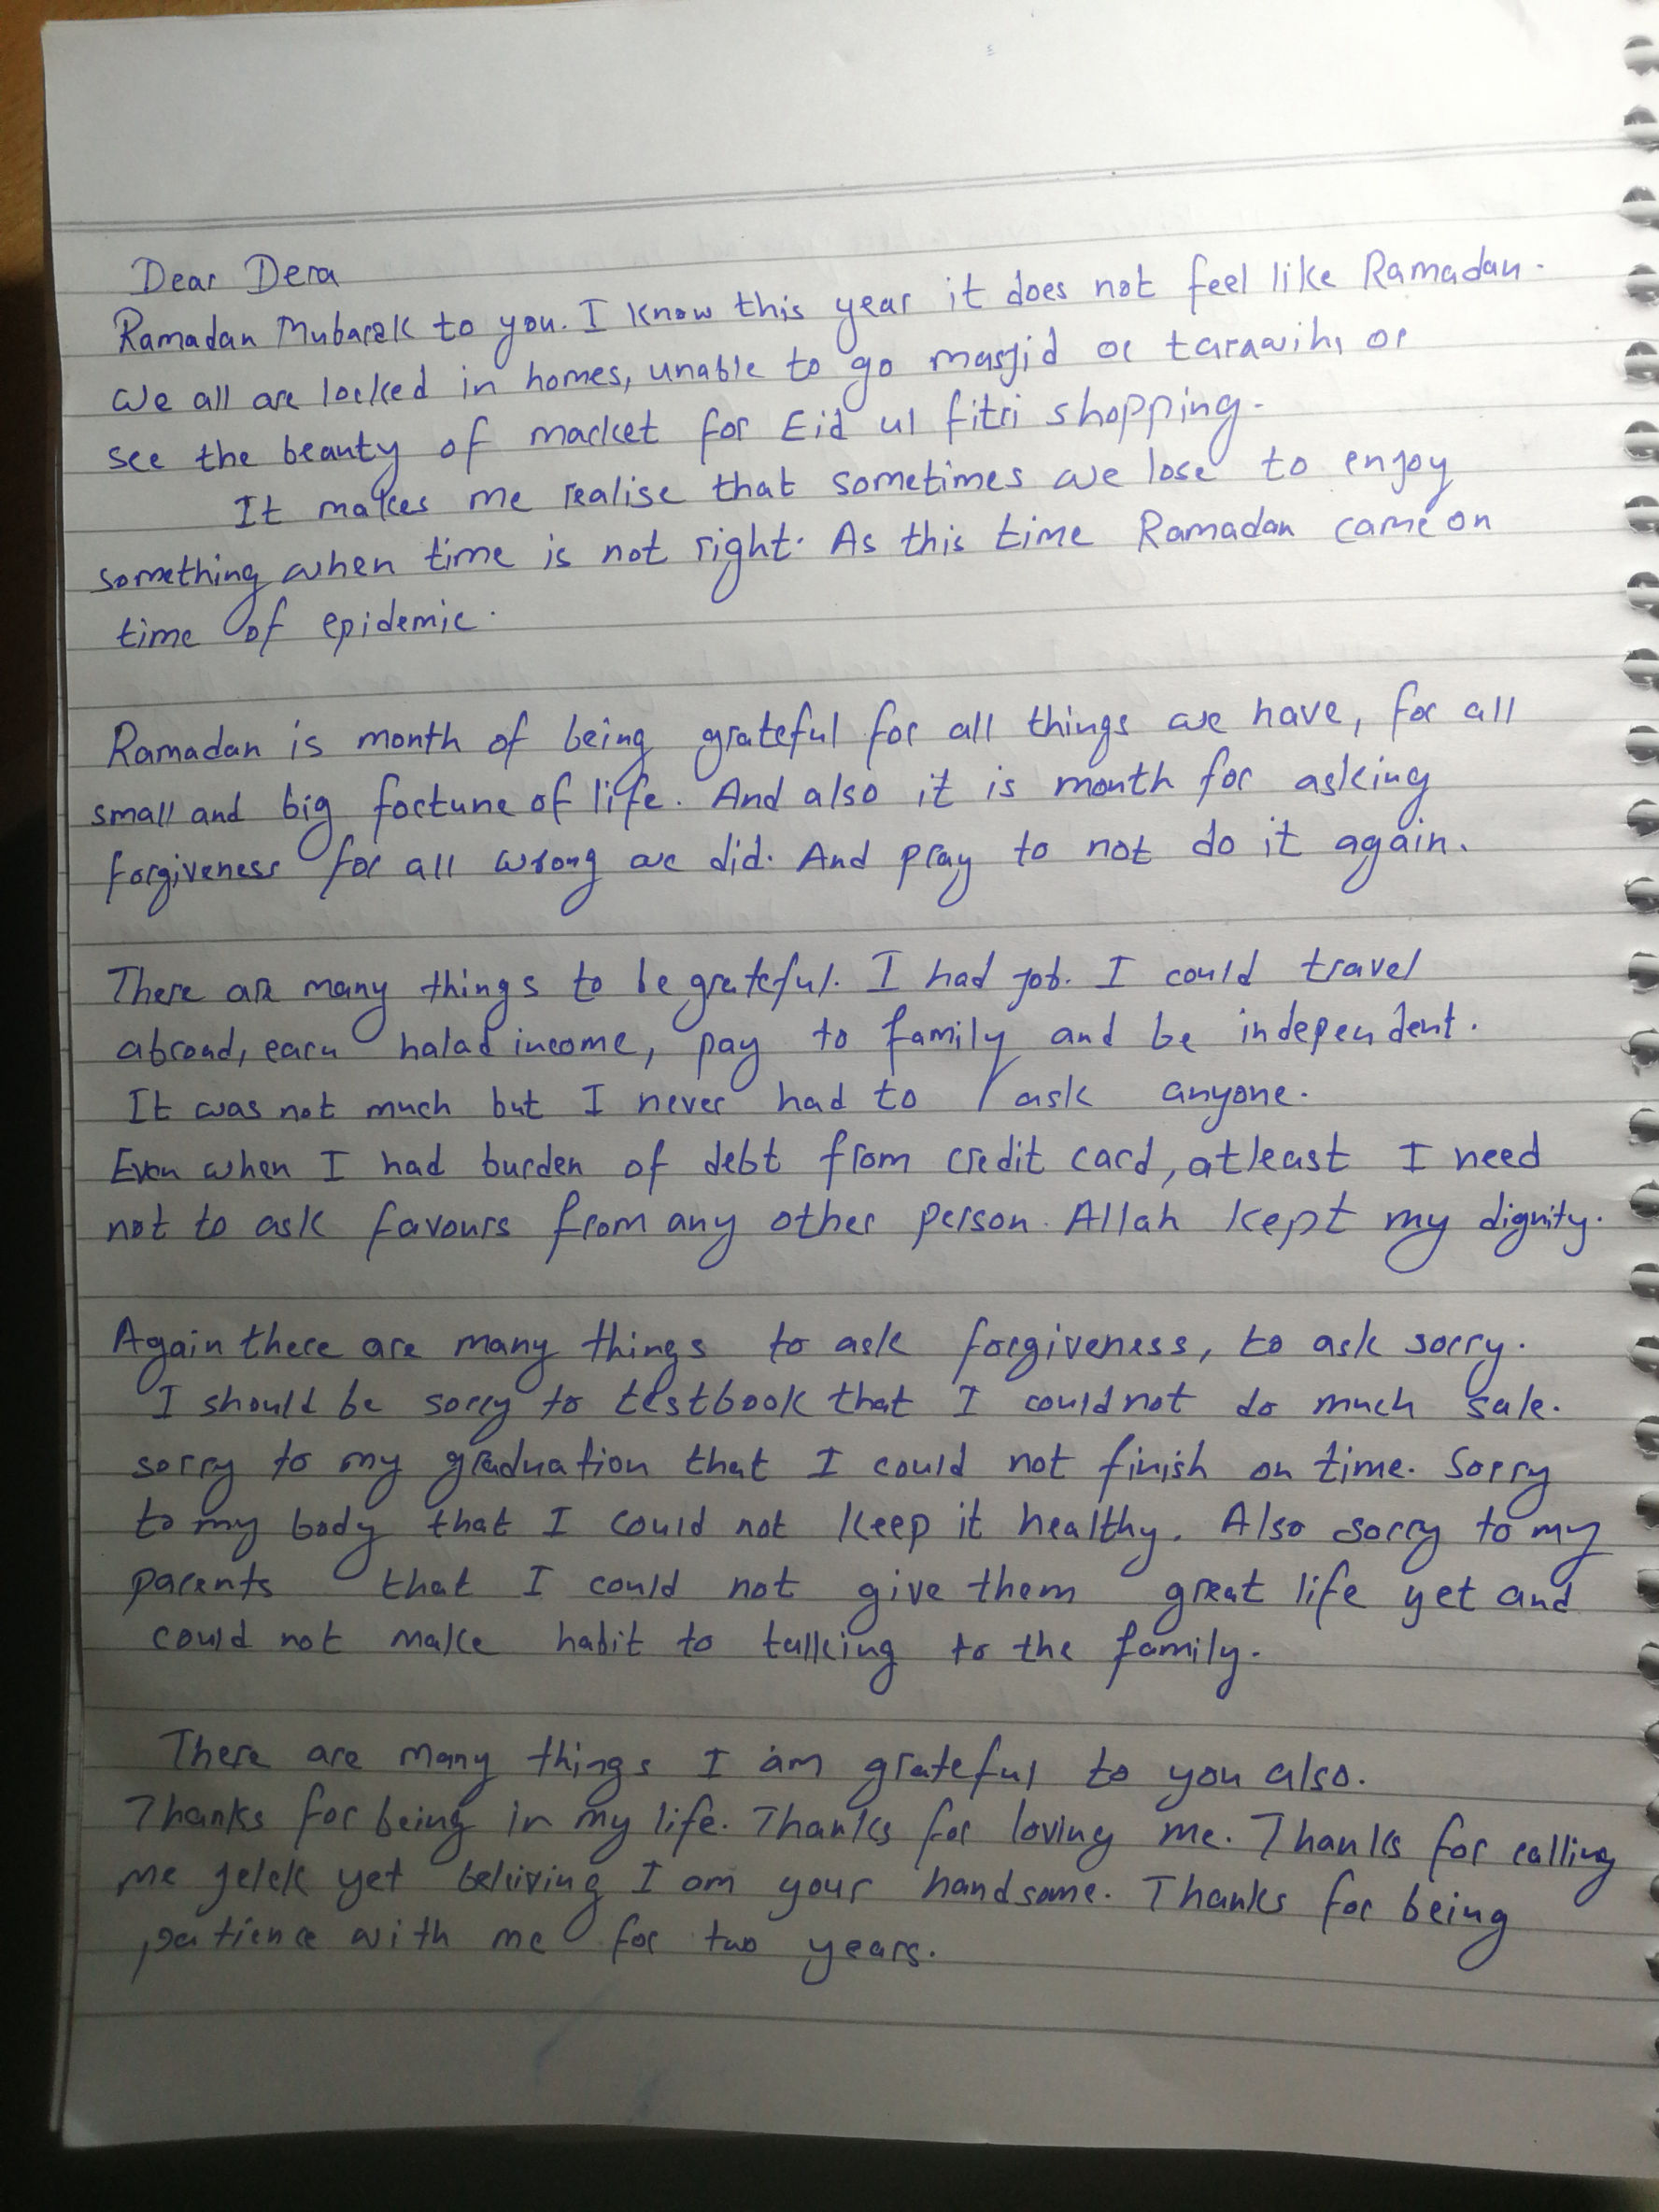 Dear Dera
Ramadan Mubarak to you. I know this year it does not feel like Ramadan.
We all are locked in homes, unable to go masjid or tarawih, or
see the beauty of market for Eid ul fitri shopping.
It makes me realise that sometimes we lose to enjoy
something when time is not right. As this time Ramadan came on
time of epidemic.
Ramadan is month of being grateful for all things we have, for all
small and big fortune of life. And also it is month for asking
forgiveness for all wrong we did. And pray to not do it again.
There are many things to be grateful. I had job. I could travel
abroad, earn halal income, pay to family and be independent.
It was not much but I never had to ask anyone.
Even when I had burden of debt from credit card, atleast I need
not to ask favours from any other person. Allah kept my dignity.
Again there are many things to ask forgiveness, to ask sorry.
I should be sorry to testbook that I could not do much sale.
sorry to my graduation that I could not finish on time. Sorry
to my body that I could not keep it healthy. Also sorry to my
parents that I could not give them great life yet and
could not make habit to talking to the family.
There are many things I am grateful to you also.
Thanks for being in my life. Thanks for loving me. Thanks for calling
me jelek yet beliving I am your handsome. Thanks for being
patience with me for two years.